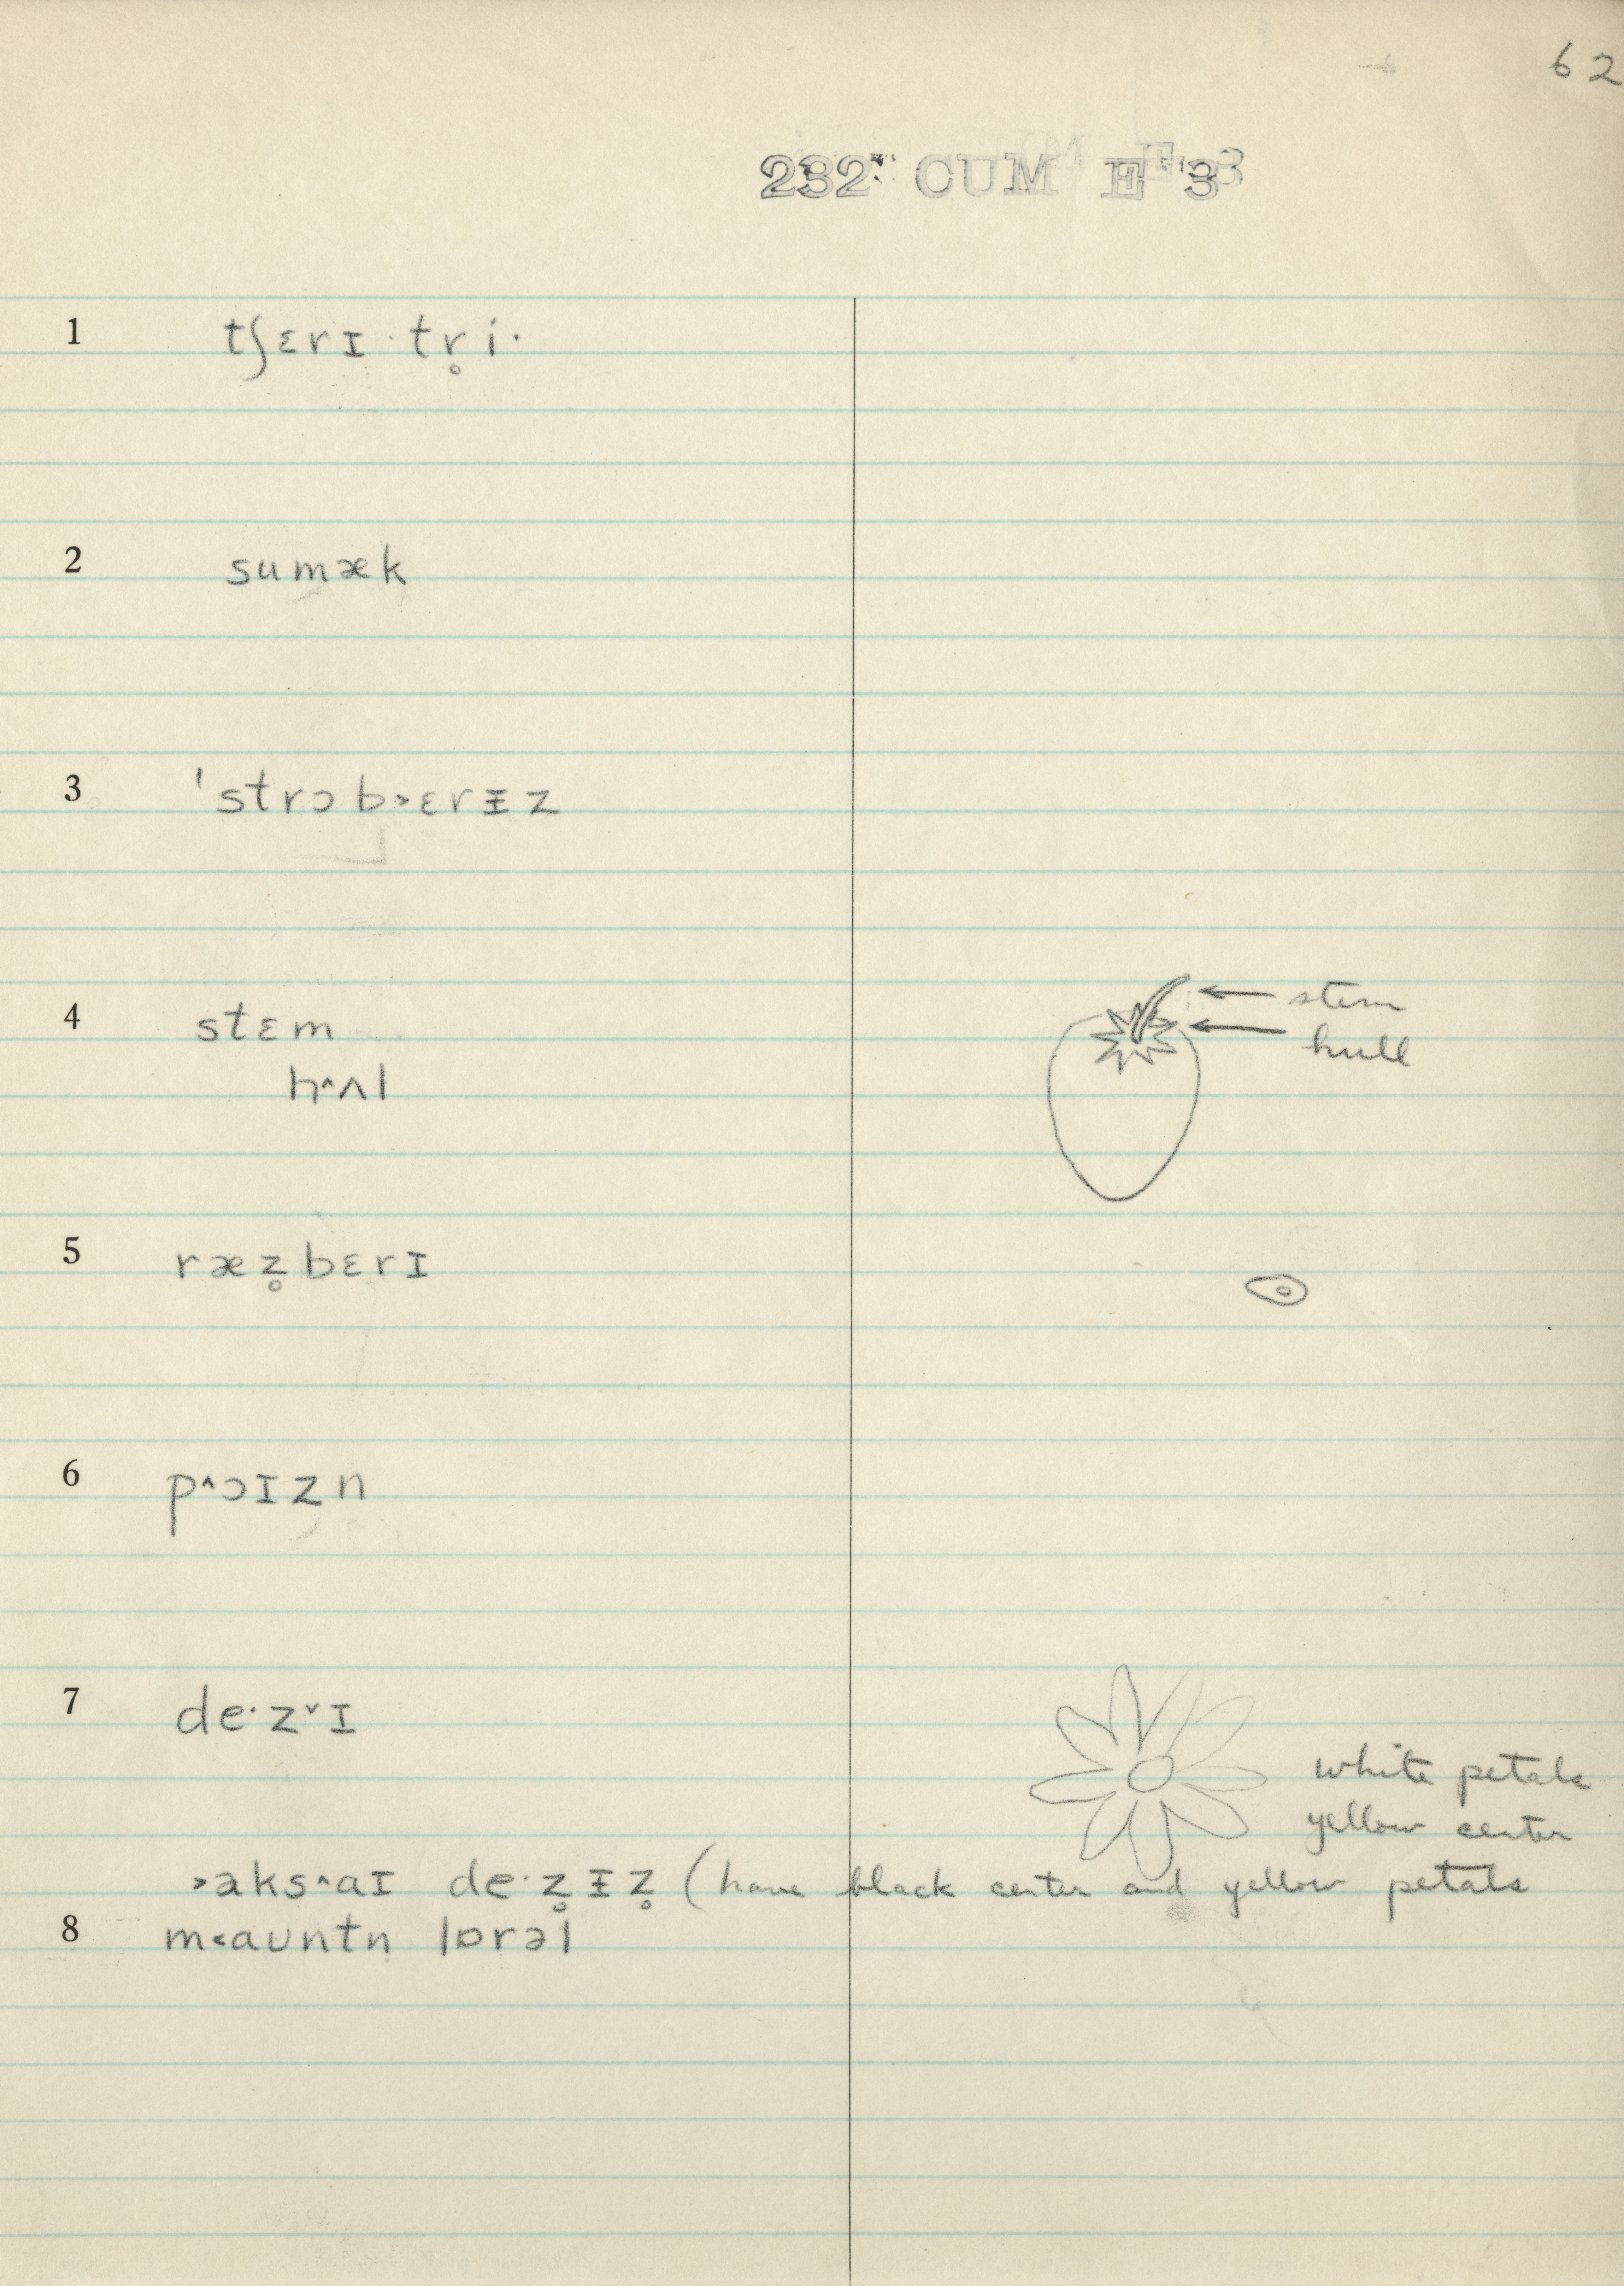 62
232 CUM E 3
1 tʃɛrɪ·tr̥i·
2 sumæk
3 ˈstrɔb˃ɛrɪ̵z
4 stɛm
stem
hull
h^ʌl
5 ræz̥bɛrɪ
6 p^ɔɪzn
7 de·z˅ɪ
white petals
yellow center
˃aks^aɪ de·z̥ɪ̵z̥ (have black center and yellow petals
8 m˂aʊntn̩ lɒrəl